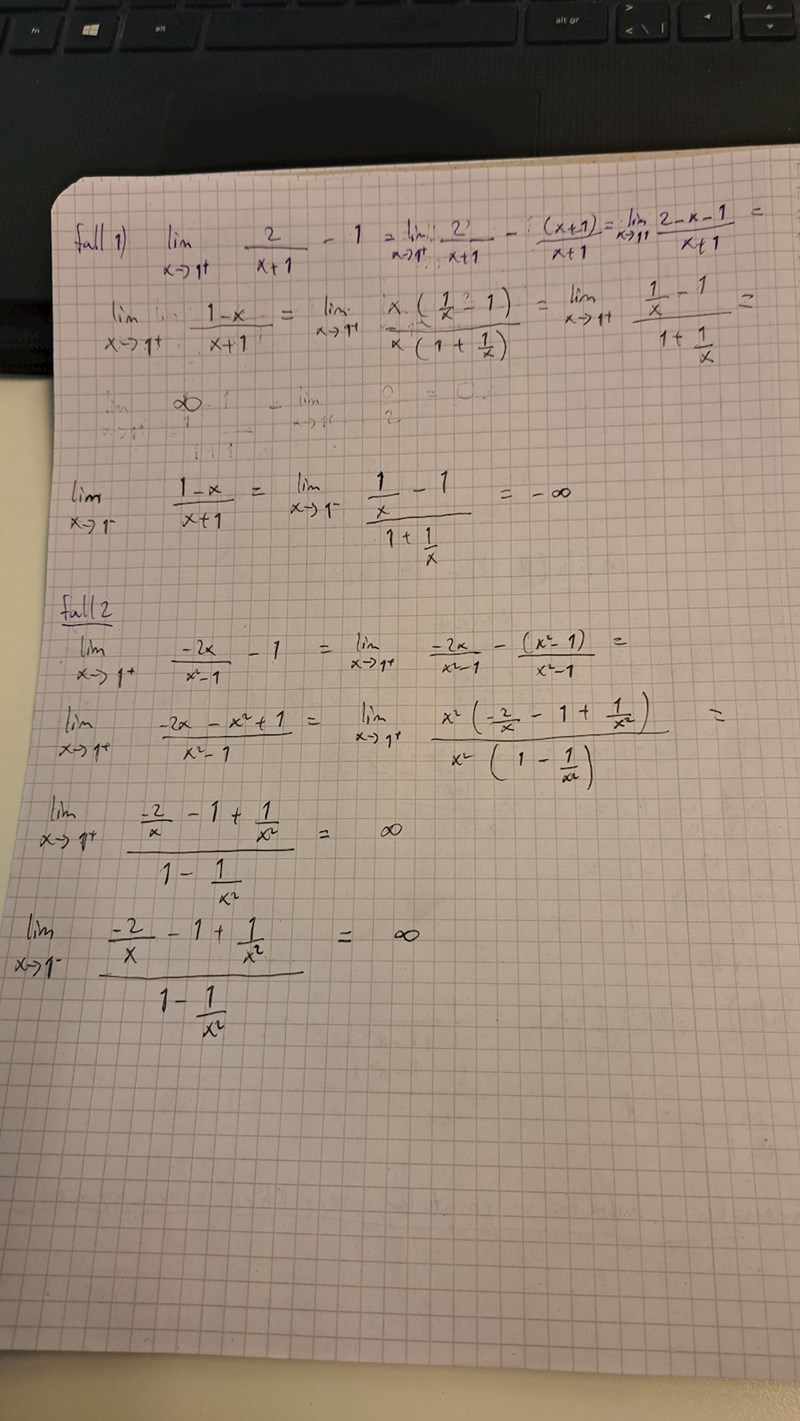 fn alt alt gr > < \ |
Fall 1) lim x→1⁺ 2/(x+1) - 1 = lim x→1⁺ 2/(x+1) - (x+1)/(x+1) = lim x→1⁺ (2-x-1)/(x+1) =
lim x→1⁺ (1-x)/(x+1) = lim x→1⁺ x(1/x - 1)/x(1 + 1/x) = lim x→1⁺ (1/x - 1)/(1 + 1/x) =
∞
lim x→1⁻ (1-x)/(x+1) = lim x→1⁻ (1/x - 1)/(1 + 1/x) = -∞
Fall 2
lim x→1⁺ -2x/(x²-1) - 1 = lim x→1⁺ -2x/(x²-1) - (x²-1)/(x²-1) =
lim x→1⁺ (-2x - x² + 1)/(x²-1) = lim x→1⁺ x²(-2/x - 1 + 1/x²)/x²(1 - 1/x²) =
lim x→1⁺ (-2/x - 1 + 1/x²)/(1 - 1/x²) = ∞
lim x→1⁻ (-2/x - 1 + 1/x²)/(1 - 1/x²) = ∞